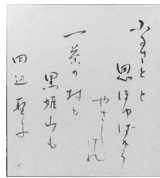 ふるさとと
思ほゆばかり
やさしけれ
一茶の村も
黒姫山も
田辺聖子